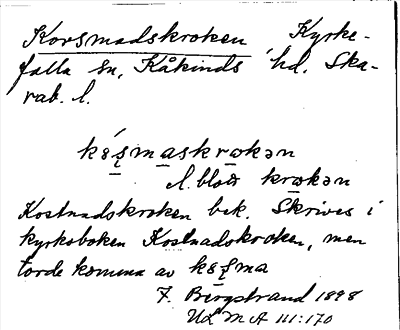 Korsmadskroken Kyrke-
falla sn, Kåkinds hd. Ska-
rab. l.
kɞʂmaskrɷkən
l. blott krɷkən
Kostnadskroken bek. Skrives i
kyrkoboken Kostnadskroken, men
torde komma av kɞʂma
F. Bergstrand 1898
ULMA 111:170